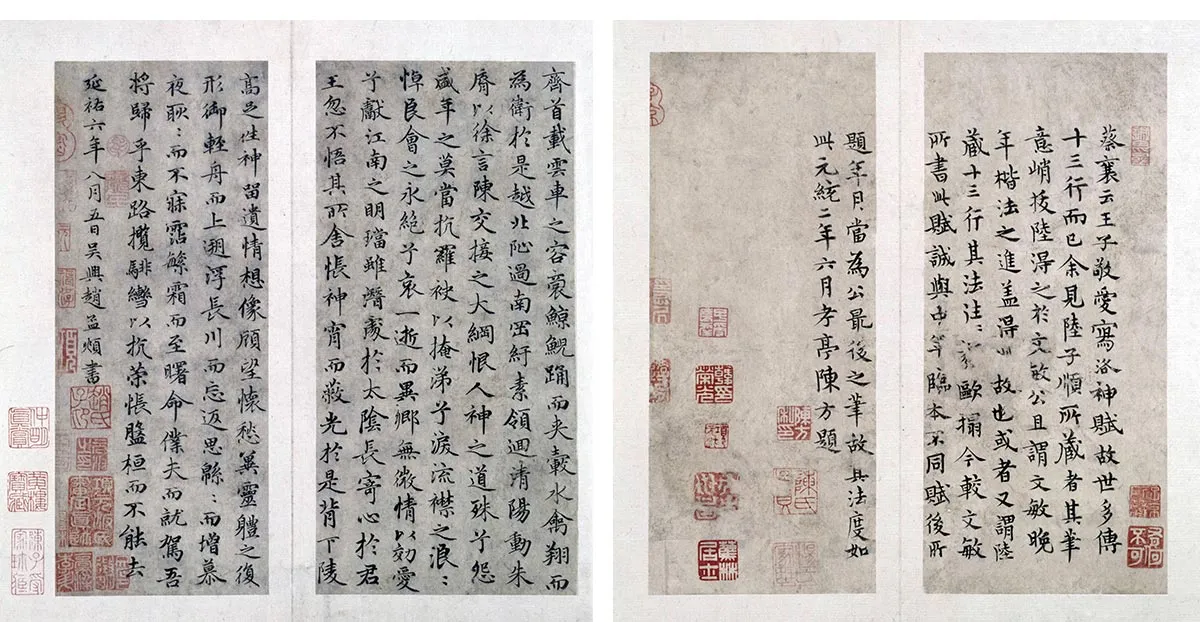 齊首載雲車之容裔鯨鯢踊而夾轂水禽翔而
為衛於是越北沚過南岡紆素領迴清陽動朱
脣以徐言陳交接之大綱恨人神之道殊兮怨
盛年之莫當抗羅袂以掩涕兮淚流襟之浪：
悼良會之永絕兮哀一逝而異鄉無微情以効愛
兮獻江南之明璫雖潛處於太陰長寄心於君
王忽不悟其所舍悵神宵而蔽光於是背下陵
高足往神留遺情想像顧望懷愁冀靈體之復
形御輕舟而上遡浮長川而忘返思緜：而增慕
夜耿：而不寐霑繁霜而至曙命僕夫而就駕吾
將歸乎東路攬騑轡以抗策悵盤桓而不能去
延祐六年八月五日吳興趙孟頫書
蔡襄云王子敬愛寫洛神賦故世多傳
十三行而已余見陸子順所藏者其筆
意峭技陸得之於文敏公且謂文敏晚
年楷法之進蓋得此故也或者又謂陸
藏十三行其法往：歐搨今較文敏
所書此賦誠與中年臨本不同賦後所
題年月當為公最後之筆故其法度如
此元統二年六月孝亭陳方題